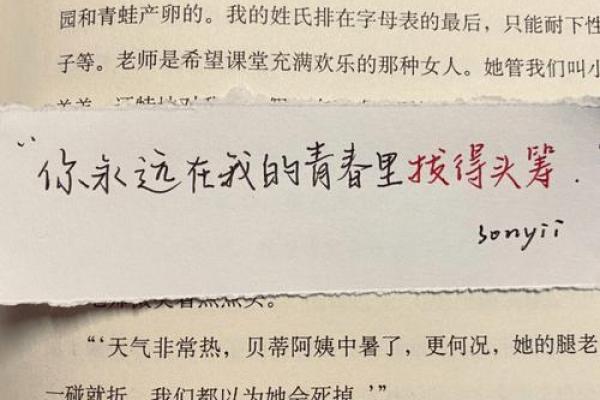 园和青蛙产卵的。我的姓氏排在字母表的最后，只能耐下性
子等。老师是希望课堂充满欢乐的那种女人。她管我们叫小
“你永远在我的青春里拔得头筹.”
sonyii
“‘天气非常热，贝蒂阿姨中暑了，更何况，她的腿老
一碰就折，我们都以为她会死掉。’”